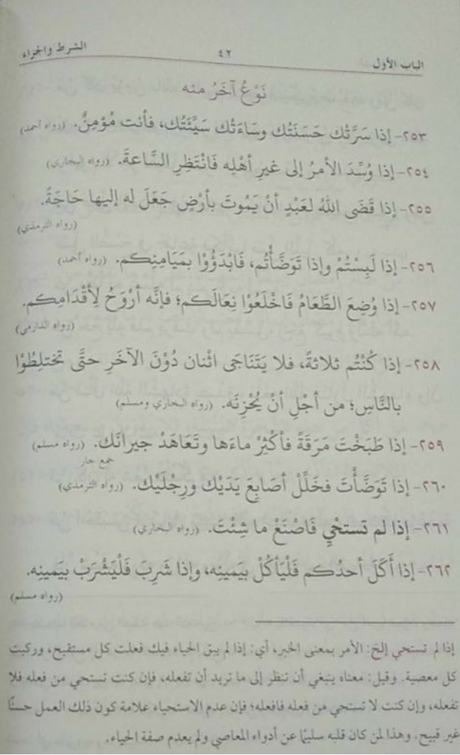 الباب الأول ٤٢ الشرط والجزاء
نَوْعٌ آخَرُ منه
٢٥٣- إذا سَرَّتْكَ حَسَنَتُكَ وسَاءَتْكَ سَيِّئَتُكَ، فأنت مُؤمِنٌ. (رواه أحمد)
٢٥٤- إذا وُسِّدَ الأمرُ إلى غيرِ أهْلِه فَانْتَظِرِ السَّاعةَ. (رواه البخاري)
٢٥٥- إذا قَضَى اللهُ لعَبْدٍ أنْ يَمُوتَ بأرْضٍ جَعَلَ له إليها حَاجَةً.
(رواه الترمذي)
٢٥٦- إذا لَبِسْتُمْ وإذا تَوَضَّأْتُم، فَابْدَؤُوْا بمَيَامِنِكم. (رواه أحمد)
٢٥٧- إذا وُضِعَ الطَّعَامُ فَاخْلَعُوْا نِعَالَكم؛ فإنَّه أرْوَحُ لِأَقْدَامِكم.
(رواه الدارمي)
٢٥٨- إذا كُنْتُم ثلاثةً، فلا يَتَنَاجَى اثْنان دُوْنَ الآخَرِ حتَّى تختلِطُوْا
بالنَّاسِ؛ من أجْلِ أنْ يُحْزِنَه. (رواه البخاري ومسلم)
٢٥٩- إذا طَبَخْتَ مَرَقَةً فأكْثِرْ ماءَها وتَعَاهَدْ جيرانَك. (رواه مسلم)
جمع جار
٢٦٠- إذا تَوَضَّأْتَ فخَلِّلْ أصَابِعَ يَدَيْك ورِجْلَيْك. (رواه الترمذي)
٢٦١- إذا لم تستحْيِ فَاصْنَعْ ما شِئْتَ. (رواه البخاري)
٢٦٢- إذا أكَلَ أحدُكم فَلْيَأكُلْ بيَمينِه، وإذا شَرِبَ فَلْيَشْرَبْ بيَمينِه.
(رواه مسلم)
إذا لم تستحي إلخ: الأمر بمعنى الخبر، أي: إذا لم يبق الحياء فيك فعلت كل مستقبح، وركبت
كل معصية. وقيل: معناه ينبغي أن تنظر إلى ما تريد أن تفعله، فإن كنت تستحي من فعله فلا
تفعله، وإن كنت لا تستحي من فعله فافعله؛ فإن عدم الاستحياء علامة كون ذلك العمل حسنًا
غير قبيح. وهذا لمن كان قلبه سليمًا عن أدواء المعاصي ولم يعدم صفة الحياء.